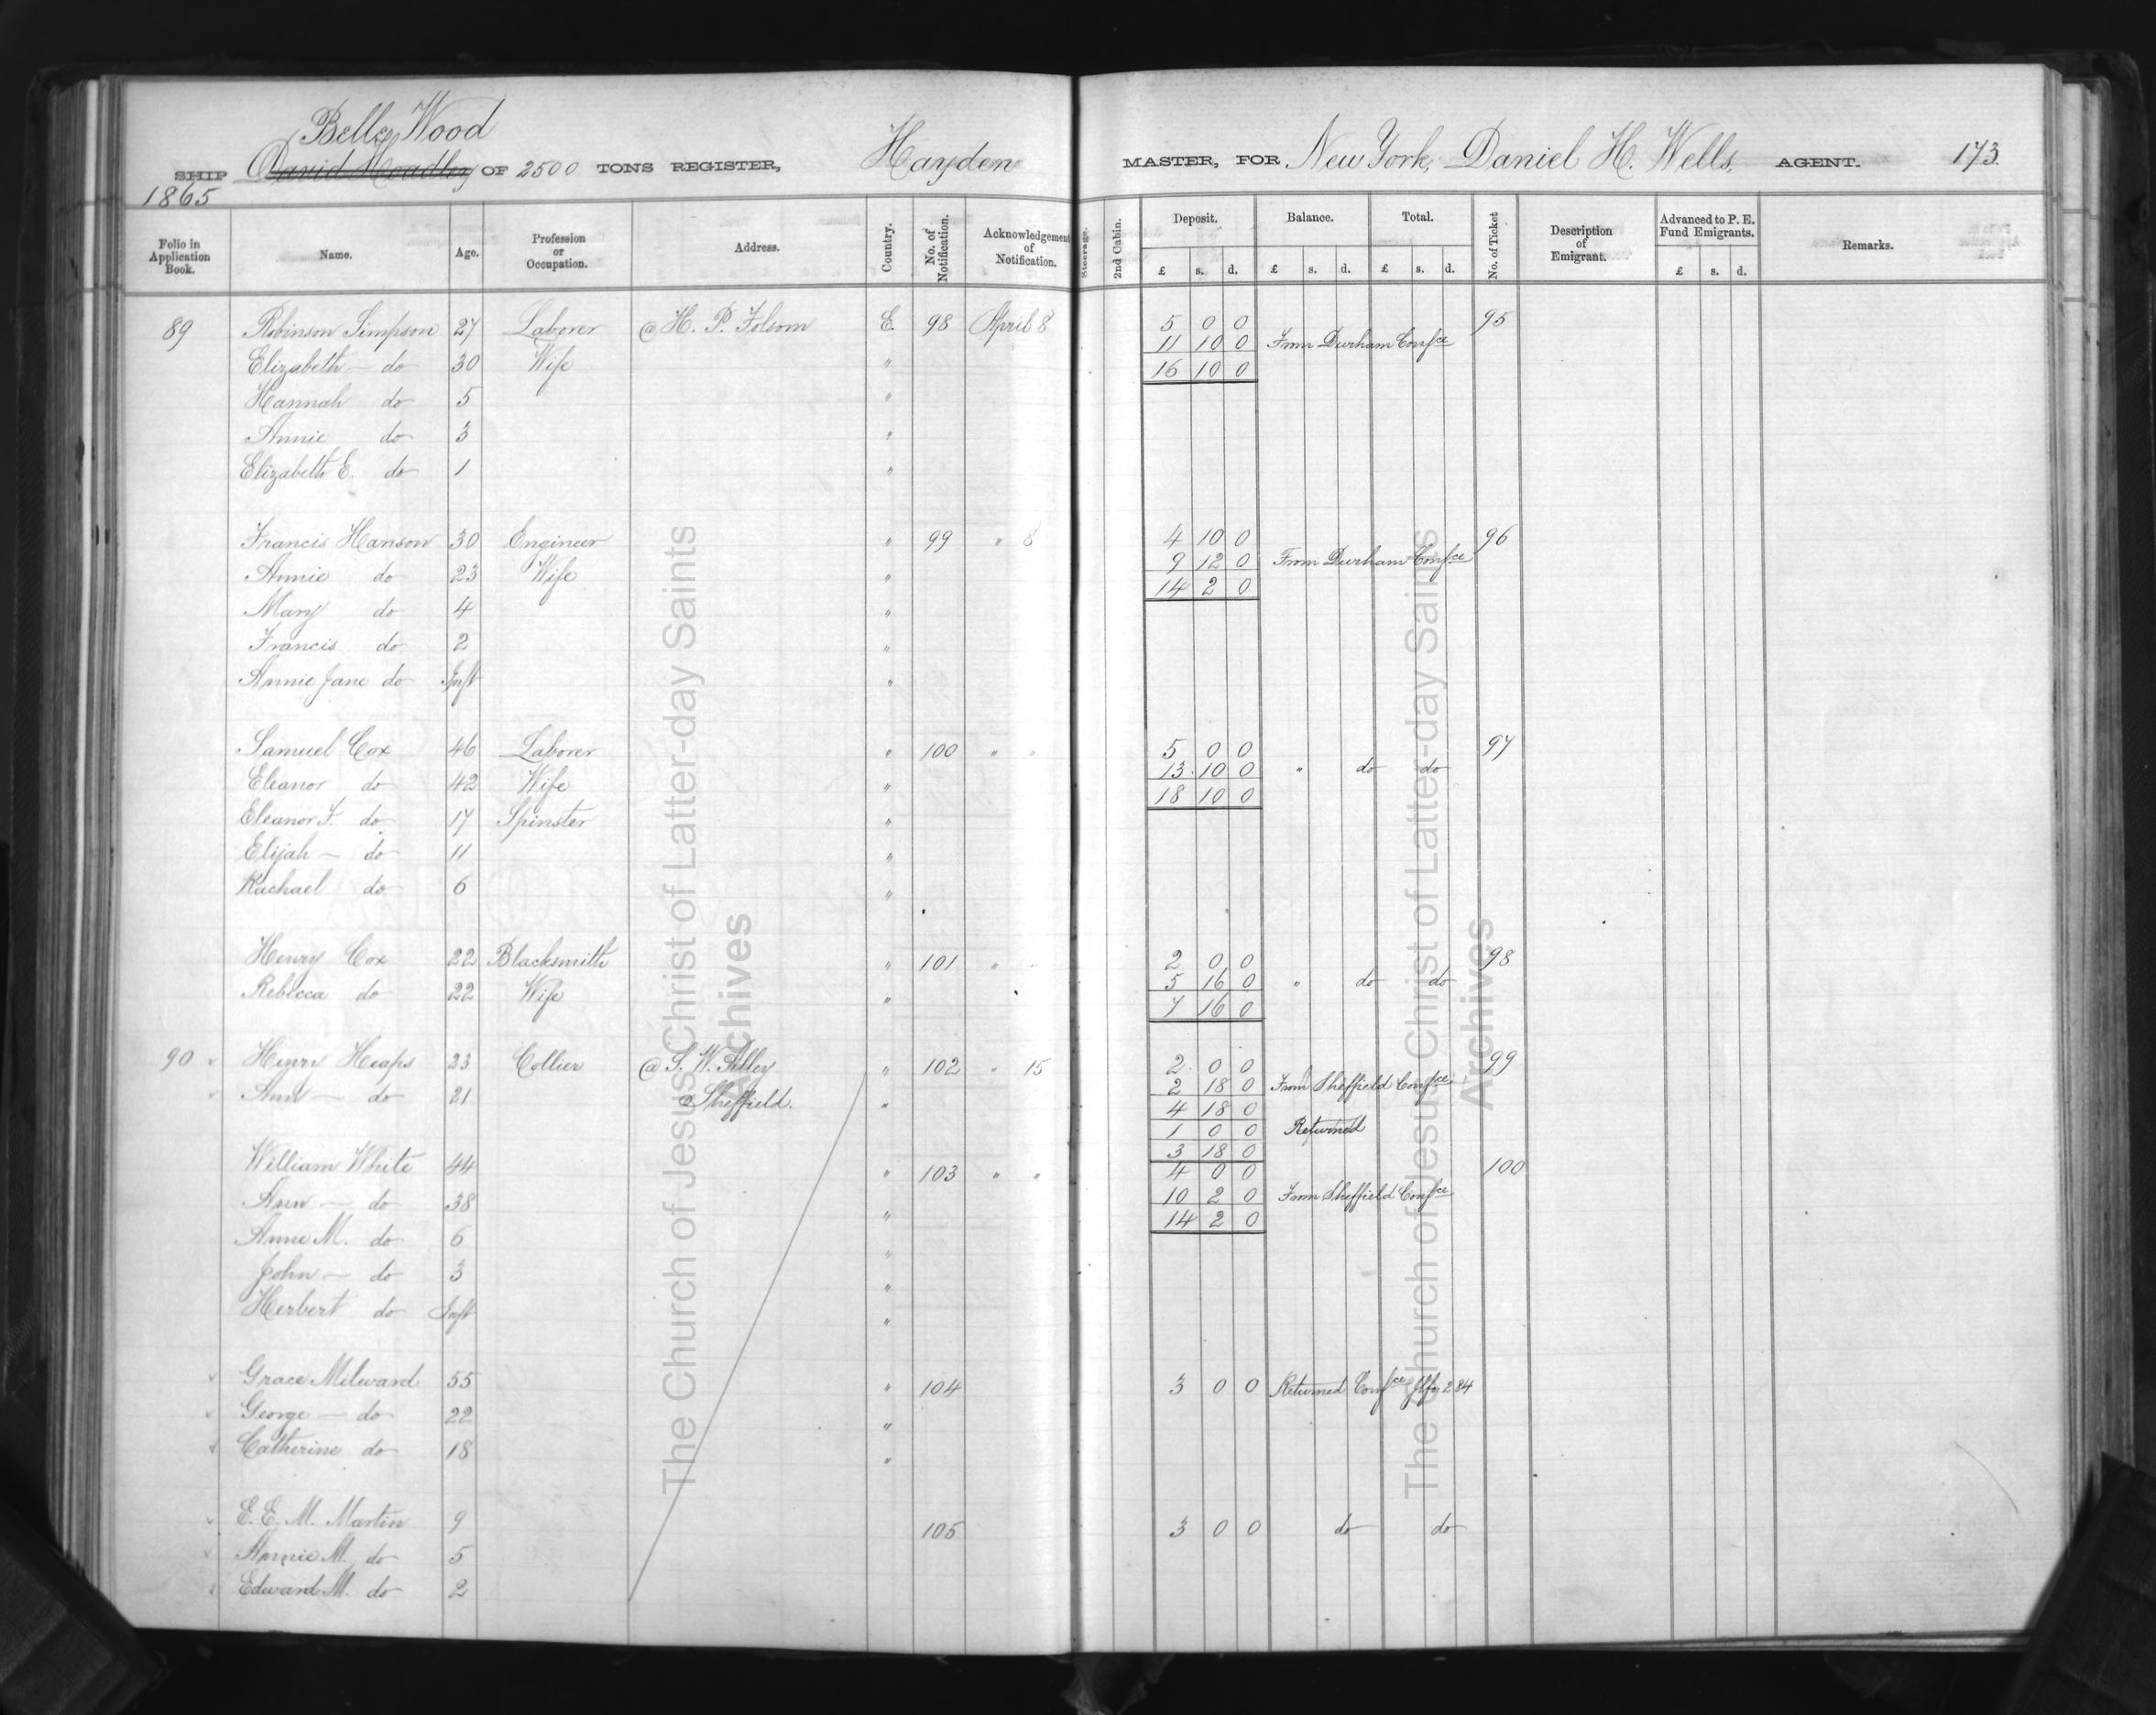 Belle Wood
SHIP David Hoadley OF 2500 TONS REGISTER, Hayden MASTER, FOR New York, Daniel H. Wells, AGENT. 173.
1865
Folio in Application Book. Name. Age. Profession or Occupation. Address. Country. No. of Notification. Acknowledgement of Notification. Steerage. 2nd Cabin. Deposit. Balance. Total. No. of Ticket Description of Emigrant. Advanced to P. E. Fund Emigrants. Remarks.
£ s. d. £ s. d. £ s. d. £ s. d.
89 Robinson Simpson 27 Laborer @ H. P. Folsom E. 98 April 8 5 0 0 95
11 10 0 From Durham Confce
Elizabeth — do 30 Wife " 16 10 0
Hannah do 5 "
Annie do 3 "
Elizabeth E. do 1 "
Francis Hanson 30 Engineer " 99 " 8 4 10 0 96
9 12 0 From Durham Confce
Annie do 23 Wife " 14 2 0
Mary do 4 "
Francis do 2 "
Annie Jane do Inft "
Samuel Cox 46 Laborer " 100 " " 5 0 0 97
13 10 0 " do do
Eleanor do 42 Wife " 18 10 0
Eleanor F. do 17 Spinster "
Elijah — do 11 "
Rachael do 6 "
Henry Cox 22 Blacksmith " 101 " " 2 0 0 98
5 16 0 " do do
Rebecca do 22 Wife " 7 16 0
90 Henry Heaps 23 Collier @ S. W. Alley " 102 " 15 2 0 0 99
2 18 0 From Sheffield Confce
Ann — do 21 Sheffield. " 4 18 0
1 0 0 Returned
3 18 0
William White 44 " 103 " " 4 0 0 100
10 2 0 From Sheffield Confce
Ann — do 38 " 14 2 0
Anne M. do 6 "
John — do 3 "
Herbert do Inft "
Grace Milward 55 " 104 3 0 0 Returned Confce 284
George — do 22 "
Catherine do 18 "
E. E. M. Martin 9 105 3 0 0 do do
Annie M. do 5
Edward M. do 2
The Church of Jesus Christ of Latter-day Saints
Archives
The Church of Jesus Christ of Latter-day Saints
Archives